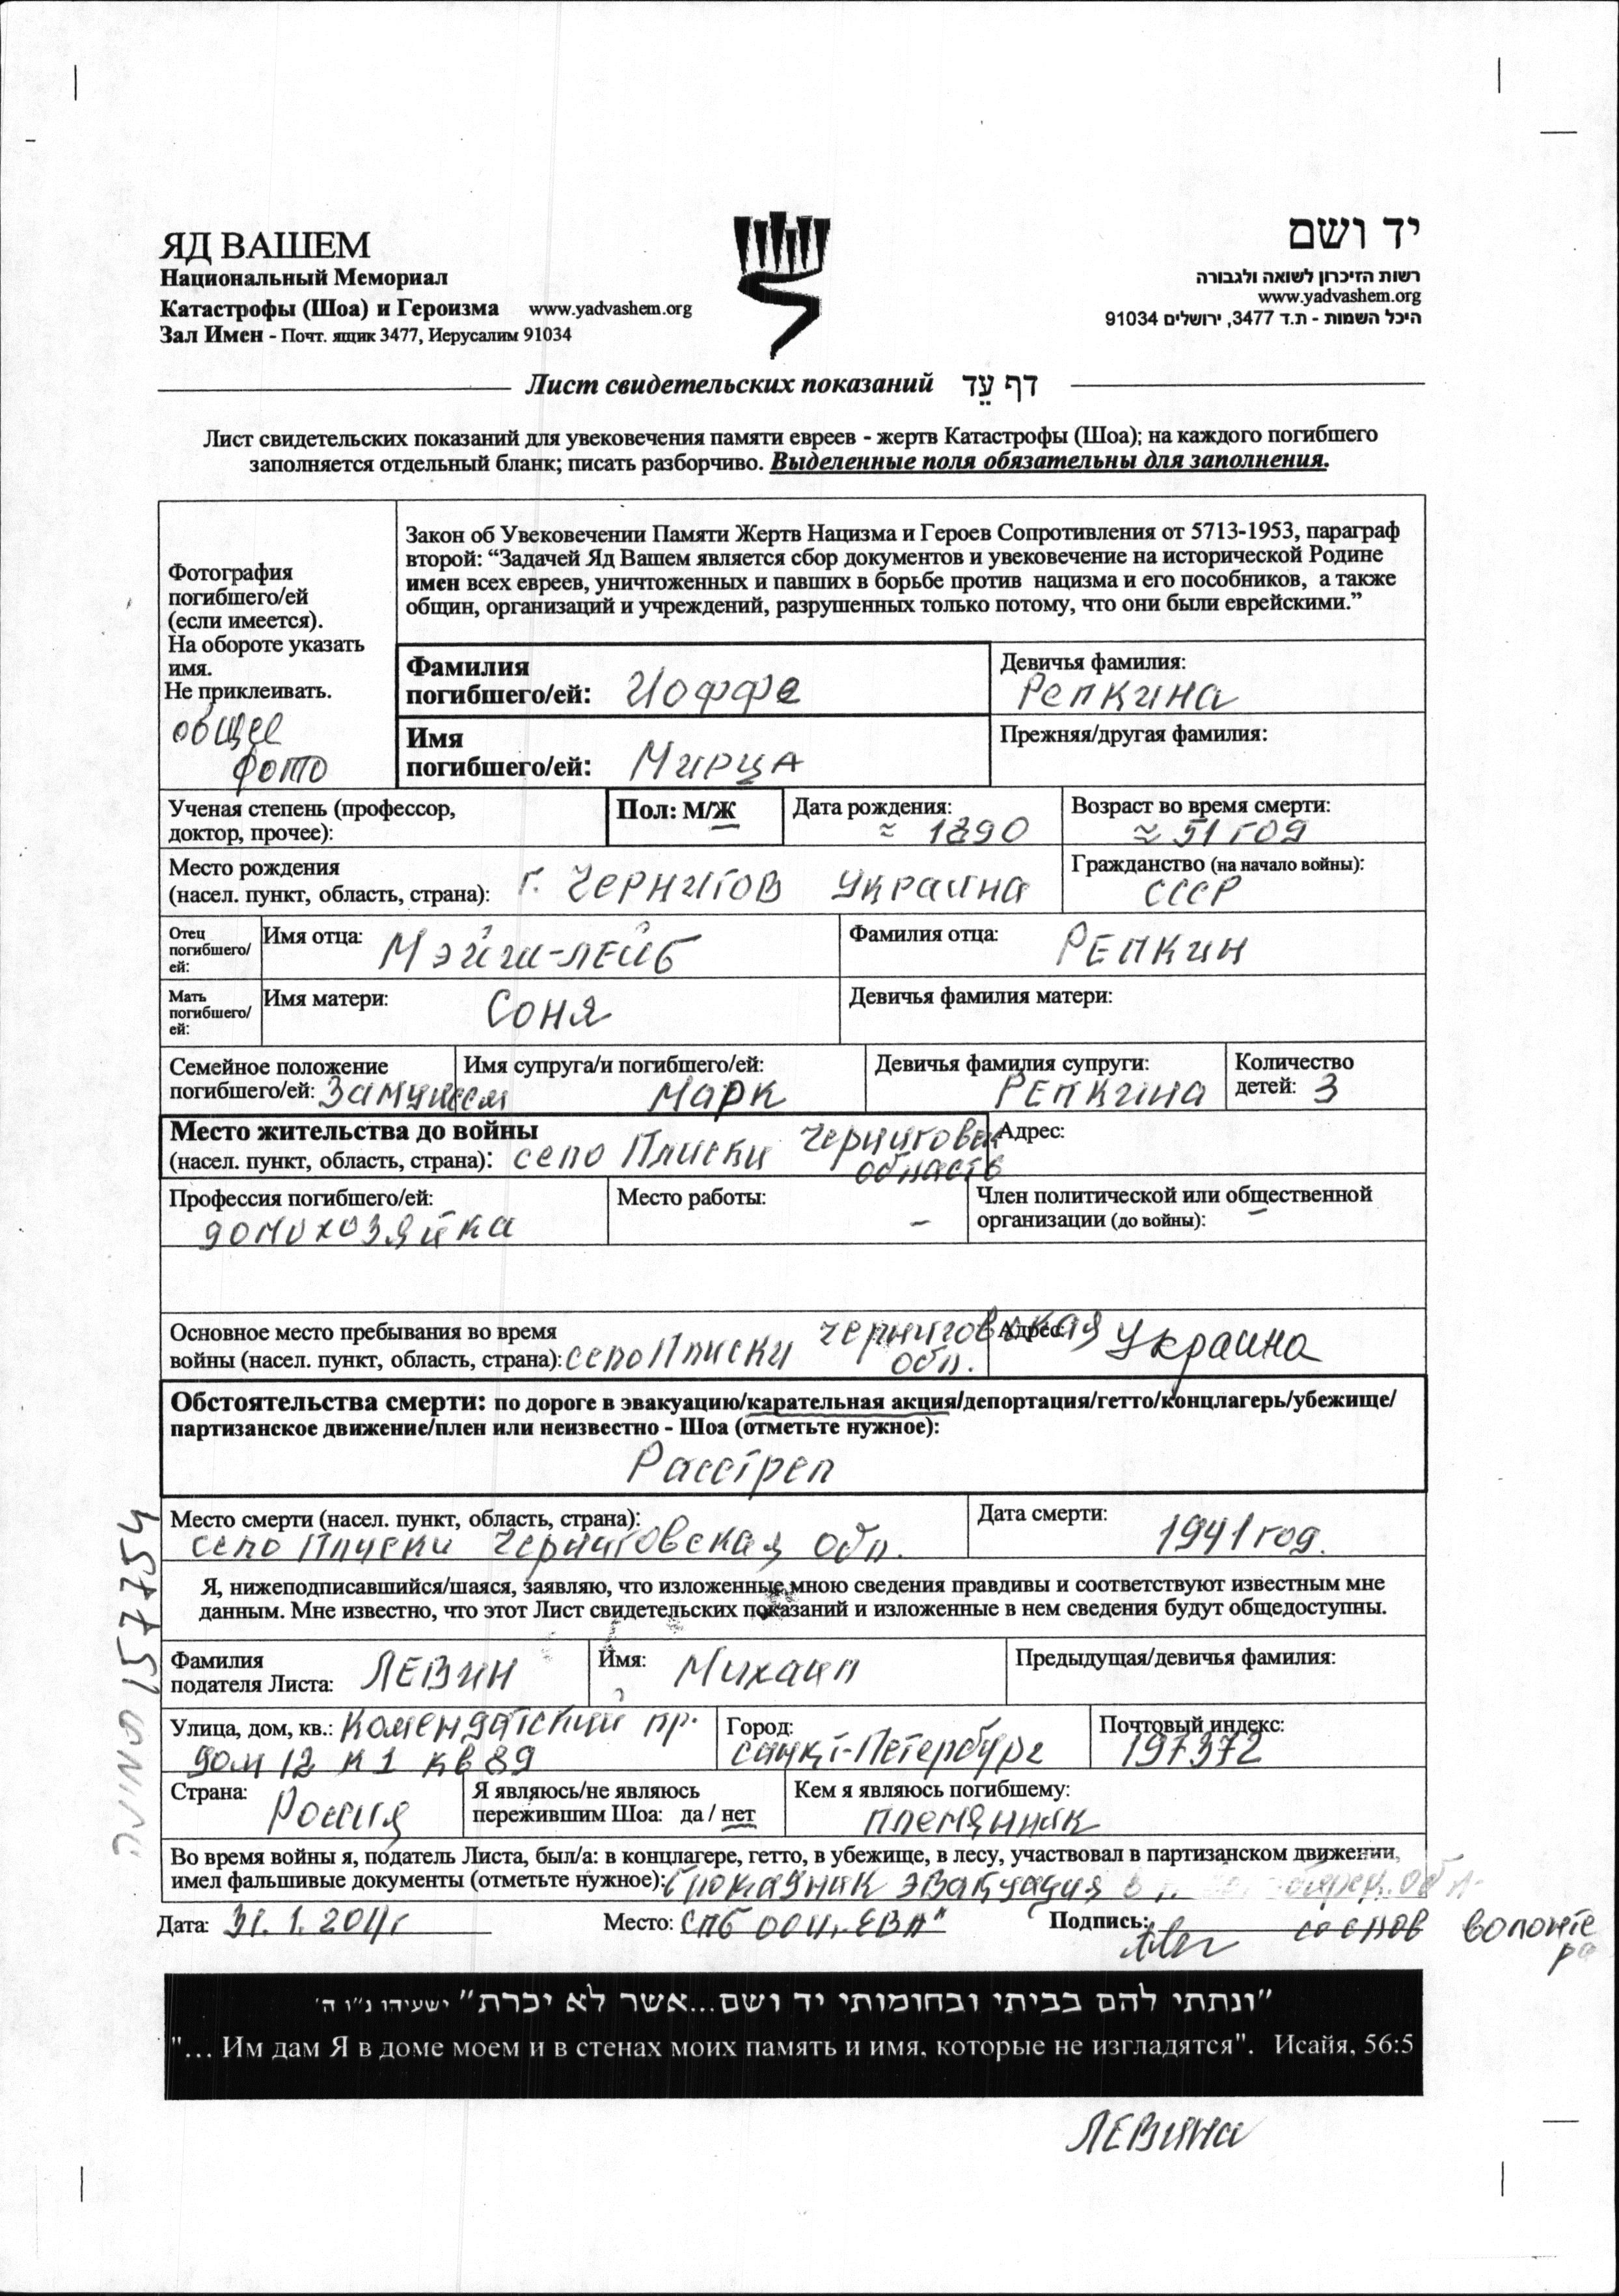 ЯД ВАШЕМ
Национальный Мемориал
Катастрофы (Шоа) и Героизма www.yadvashem.org
Зал Имен - Почт. ящик 3477, Иерусалим 91034
יד ושם
רשות הזיכרון לשואה ולגבורה
www.yadvashem.org
היכל השמות - ת.ד 3477, ירושלים 91034
Лист свидетельских показаний דף עֵד
Лист свидетельских показаний для увековечения памяти евреев - жертв Катастрофы (Шоа); на каждого погибшего
заполняется отдельный бланк; писать разборчиво. Выделенные поля обязательны для заполнения.
Фотография
погибшего/ей
(если имеется).
На обороте указать
имя.
Не приклеивать.
общее
фото
Закон об Увековечении Памяти Жертв Нацизма и Героев Сопротивления от 5713-1953, параграф
второй: “Задачей Яд Вашем является сбор документов и увековечение на исторической Родине
имен всех евреев, уничтоженных и павших в борьбе против нацизма и его пособников, а также
общин, организаций и учреждений, разрушенных только потому, что они были еврейскими.”
Фамилия
погибшего/ей: Иоффе
Девичья фамилия:
Репкина
Имя
погибшего/ей: Мирца
Прежняя/другая фамилия:
Ученая степень (профессор,
доктор, прочее):
Пол: М/Ж
Дата рождения:
≈ 1890
Возраст во время смерти:
≈ 51 год
Место рождения
(насел. пункт, область, страна): г. Чернигов Украина
Гражданство (на начало войны):
СССР
Отец
погибшего/
ей:
Имя отца: Мэйги-Лейб
Фамилия отца: Репкин
Мать
погибшего/
ей:
Имя матери: Соня
Девичья фамилия матери:
Семейное положение
погибшего/ей: Замужем
Имя супруга/и погибшего/ей:
Марк
Девичья фамилия супруги:
Репкина
Количество
детей: 3
Место жительства до войны
(насел. пункт, область, страна): село Плиски Черниговск
область
Адрес:
Профессия погибшего/ей:
домохозяйка
Место работы:
–
Член политической или общественной
организации (до войны): –
Основное место пребывания во время
войны (насел. пункт, область, страна): село Плиски Черниговская
обл.
Адрес: Украина
Обстоятельства смерти: по дороге в эвакуацию/карательная акция/депортация/гетто/концлагерь/убежище/
партизанское движение/плен или неизвестно - Шоа (отметьте нужное):
Расстрел
Место смерти (насел. пункт, область, страна):
село Плиски Черниговская обл.
Дата смерти:
1941 год.
Я, нижеподписавшийся/шаяся, заявляю, что изложенные мною сведения правдивы и соответствуют известным мне
данным. Мне известно, что этот Лист свидетельских показаний и изложенные в нем сведения будут общедоступны.
Фамилия
подателя Листа: Левин
Имя: Михаил
Предыдущая/девичья фамилия:
Улица, дом, кв.: Комендатский пр.
дом 12 к 1 кв 89
Город:
Санкт-Петербург
Почтовый индекс:
197372
Страна:
Россия
Я являюсь/не являюсь
пережившим Шоа: да / нет
Кем я являюсь погибшему:
племянник
Во время войны я, податель Листа, был/а: в концлагере, гетто, в убежище, в лесу, участвовал в партизанском движении,
имел фальшивые документы (отметьте нужное): эвакуация в обл.
Дата: 31.1.2011г
Место: СПб ООИ "ЕВА"
Подпись: со слов волонте
ра
"ונתתי להם בביתי ובחומותי יד ושם...אשר לא יכרת" ישעיהו נ"ו ה'
"... Им дам Я в доме моем и в стенах моих память и имя, которые не изгладятся". Исайя, 56:5
Левина